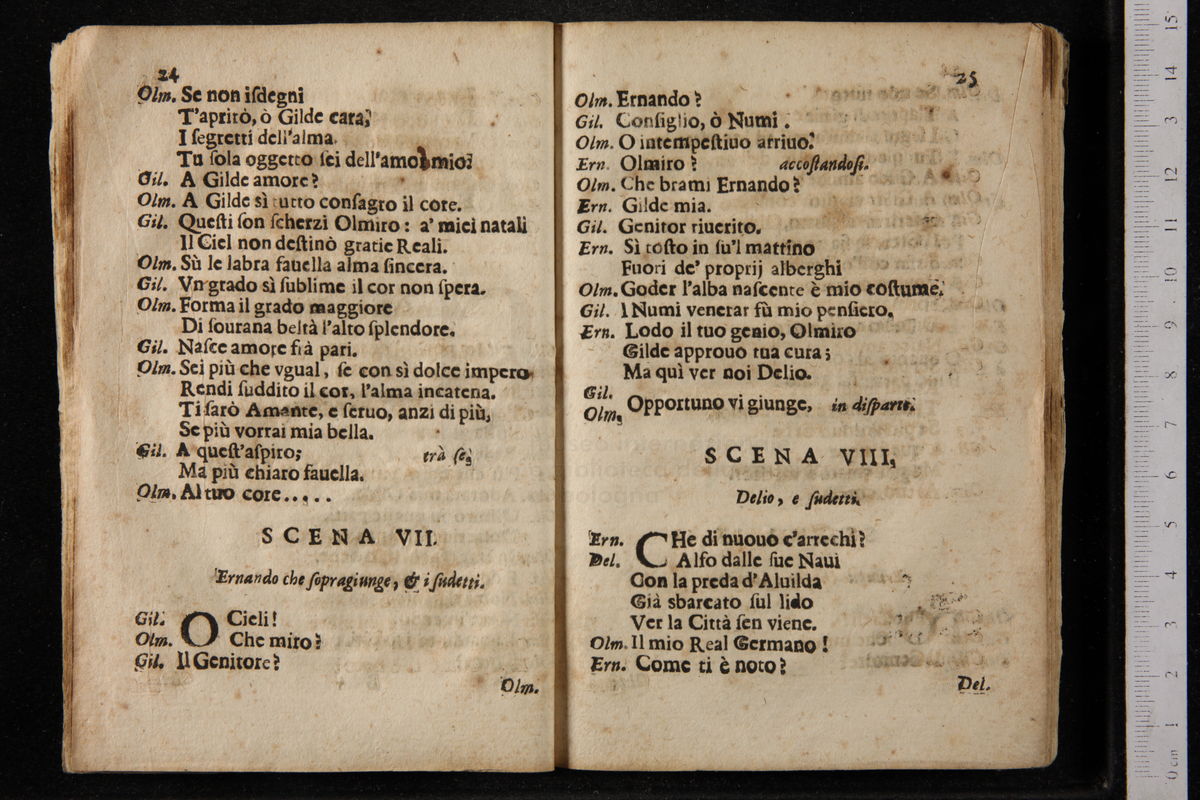 24
Olm. Se non iſdegni
T'aprirò, ò Gilde cara,
I ſegretti dell'alma.
Tu ſola oggetto ſei dell'amor mio.
Gil. A Gilde amore?
Olm. A Gilde sì tutto conſagro il core.
Gil. Queſti ſon ſcherzi Olmiro: a' miei natali
Il Ciel non deſtinò gratie Reali.
Olm. Sù le labra fauella alma ſincera.
Gil. Vn grado sì ſublime il cor non ſpera.
Olm. Forma il grado maggiore
Di ſourana beltà l'alto ſplendore.
Gil. Naſce amore frà pari.
Olm. Sei più che vgual, ſe con sì dolce impero
Rendi ſuddito il cor, l'alma incatena.
Ti ſarò Amante, e ſeruo, anzi di più,
Se più vorrai mia bella.
Gil. A queſt'aſpiro; trà ſe,
Ma più chiaro fauella.
Olm. Al tuo core.....
SCENA VII.
Ernando che ſopragiunge, & i ſudetti.
Gil. O Cieli!
Olm. Che miro?
Gil. Il Genitore?
Olm.
25
Olm. Ernando?
Gil. Conſiglio, ò Numi.
Olm. O intempeſtiuo arriuo!
Ern. Olmiro? accoſtandoſi.
Olm. Che brami Ernando?
Ern. Gilde mia.
Gil. Genitor riuerito.
Ern. Sì toſto in ſu'l mattino
Fuori de' proprij alberghi
Olm. Goder l'alba naſcente è mio coſtume.
Gil. I Numi venerar fù mio penſiero.
Ern. Lodo il tuo genio, Olmiro
Gilde approuo tua cura;
Ma quì ver noi Delio.
Gil.
Olm. Opportuno vi giunge, in diſparte.
SCENA VIII,
Delio, e ſudetti.
Ern. CHe di nuouo c'arrechi?
Del. Alfo dalle ſue Naui
Con la preda d'Aluilda
Già sbarcato ſul lido
Ver la Città ſen viene.
Olm. Il mio Real Germano!
Ern. Come ti è noto?
Del.
0 cm 1 2 3 4 5 6 7 8 9 10 11 12 13 14 15